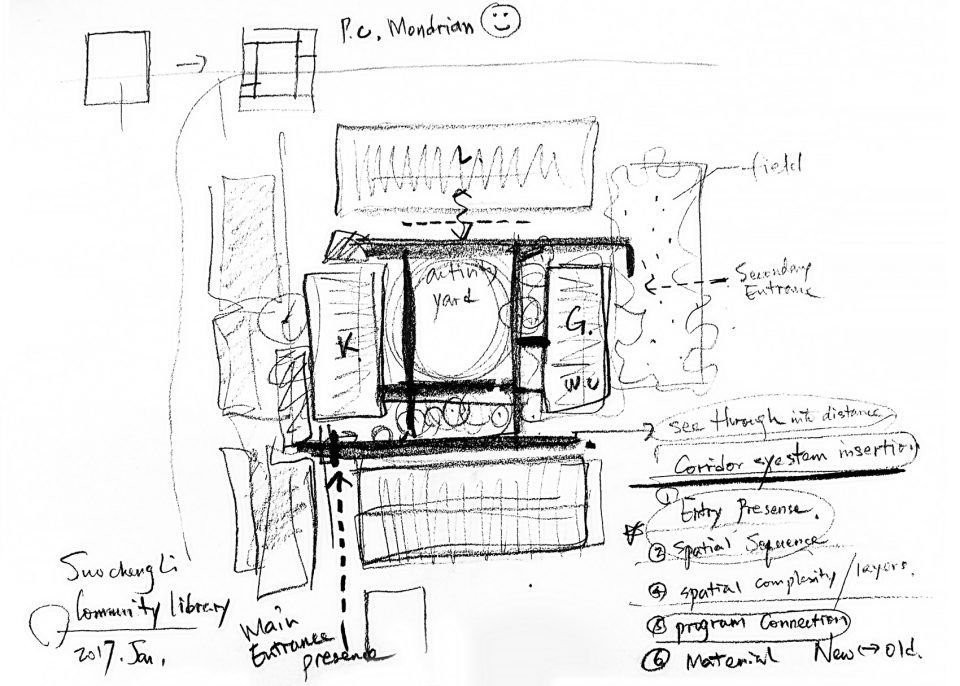 P.C. Mondrian
L
field
activity
yard
Secondary
Entrance
K.
G.
W.C
see through into distance
Corridor system insertion
① Entry Presense.
② Spatial Sequence
④ spatial complexity / layers.
⑤ program Connection
⑥ Material New ↔ Old.
Suochengli
Community Library
2017. Jan.
Main
Entrance
presence